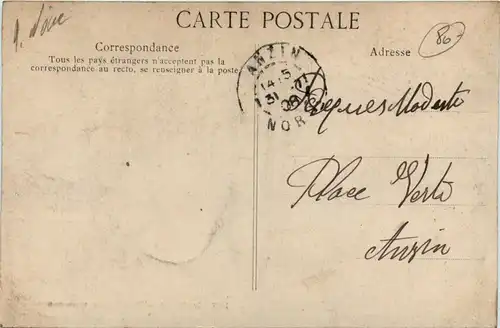 CARTE POSTALE
Correspondance
Tous les pays étrangers n'acceptent pas la
correspondance au recto, se renseigner à la poste
Adresse
80
ANZIN
14 15
31
08
NORD
Modeste
Place Verte
Anzin